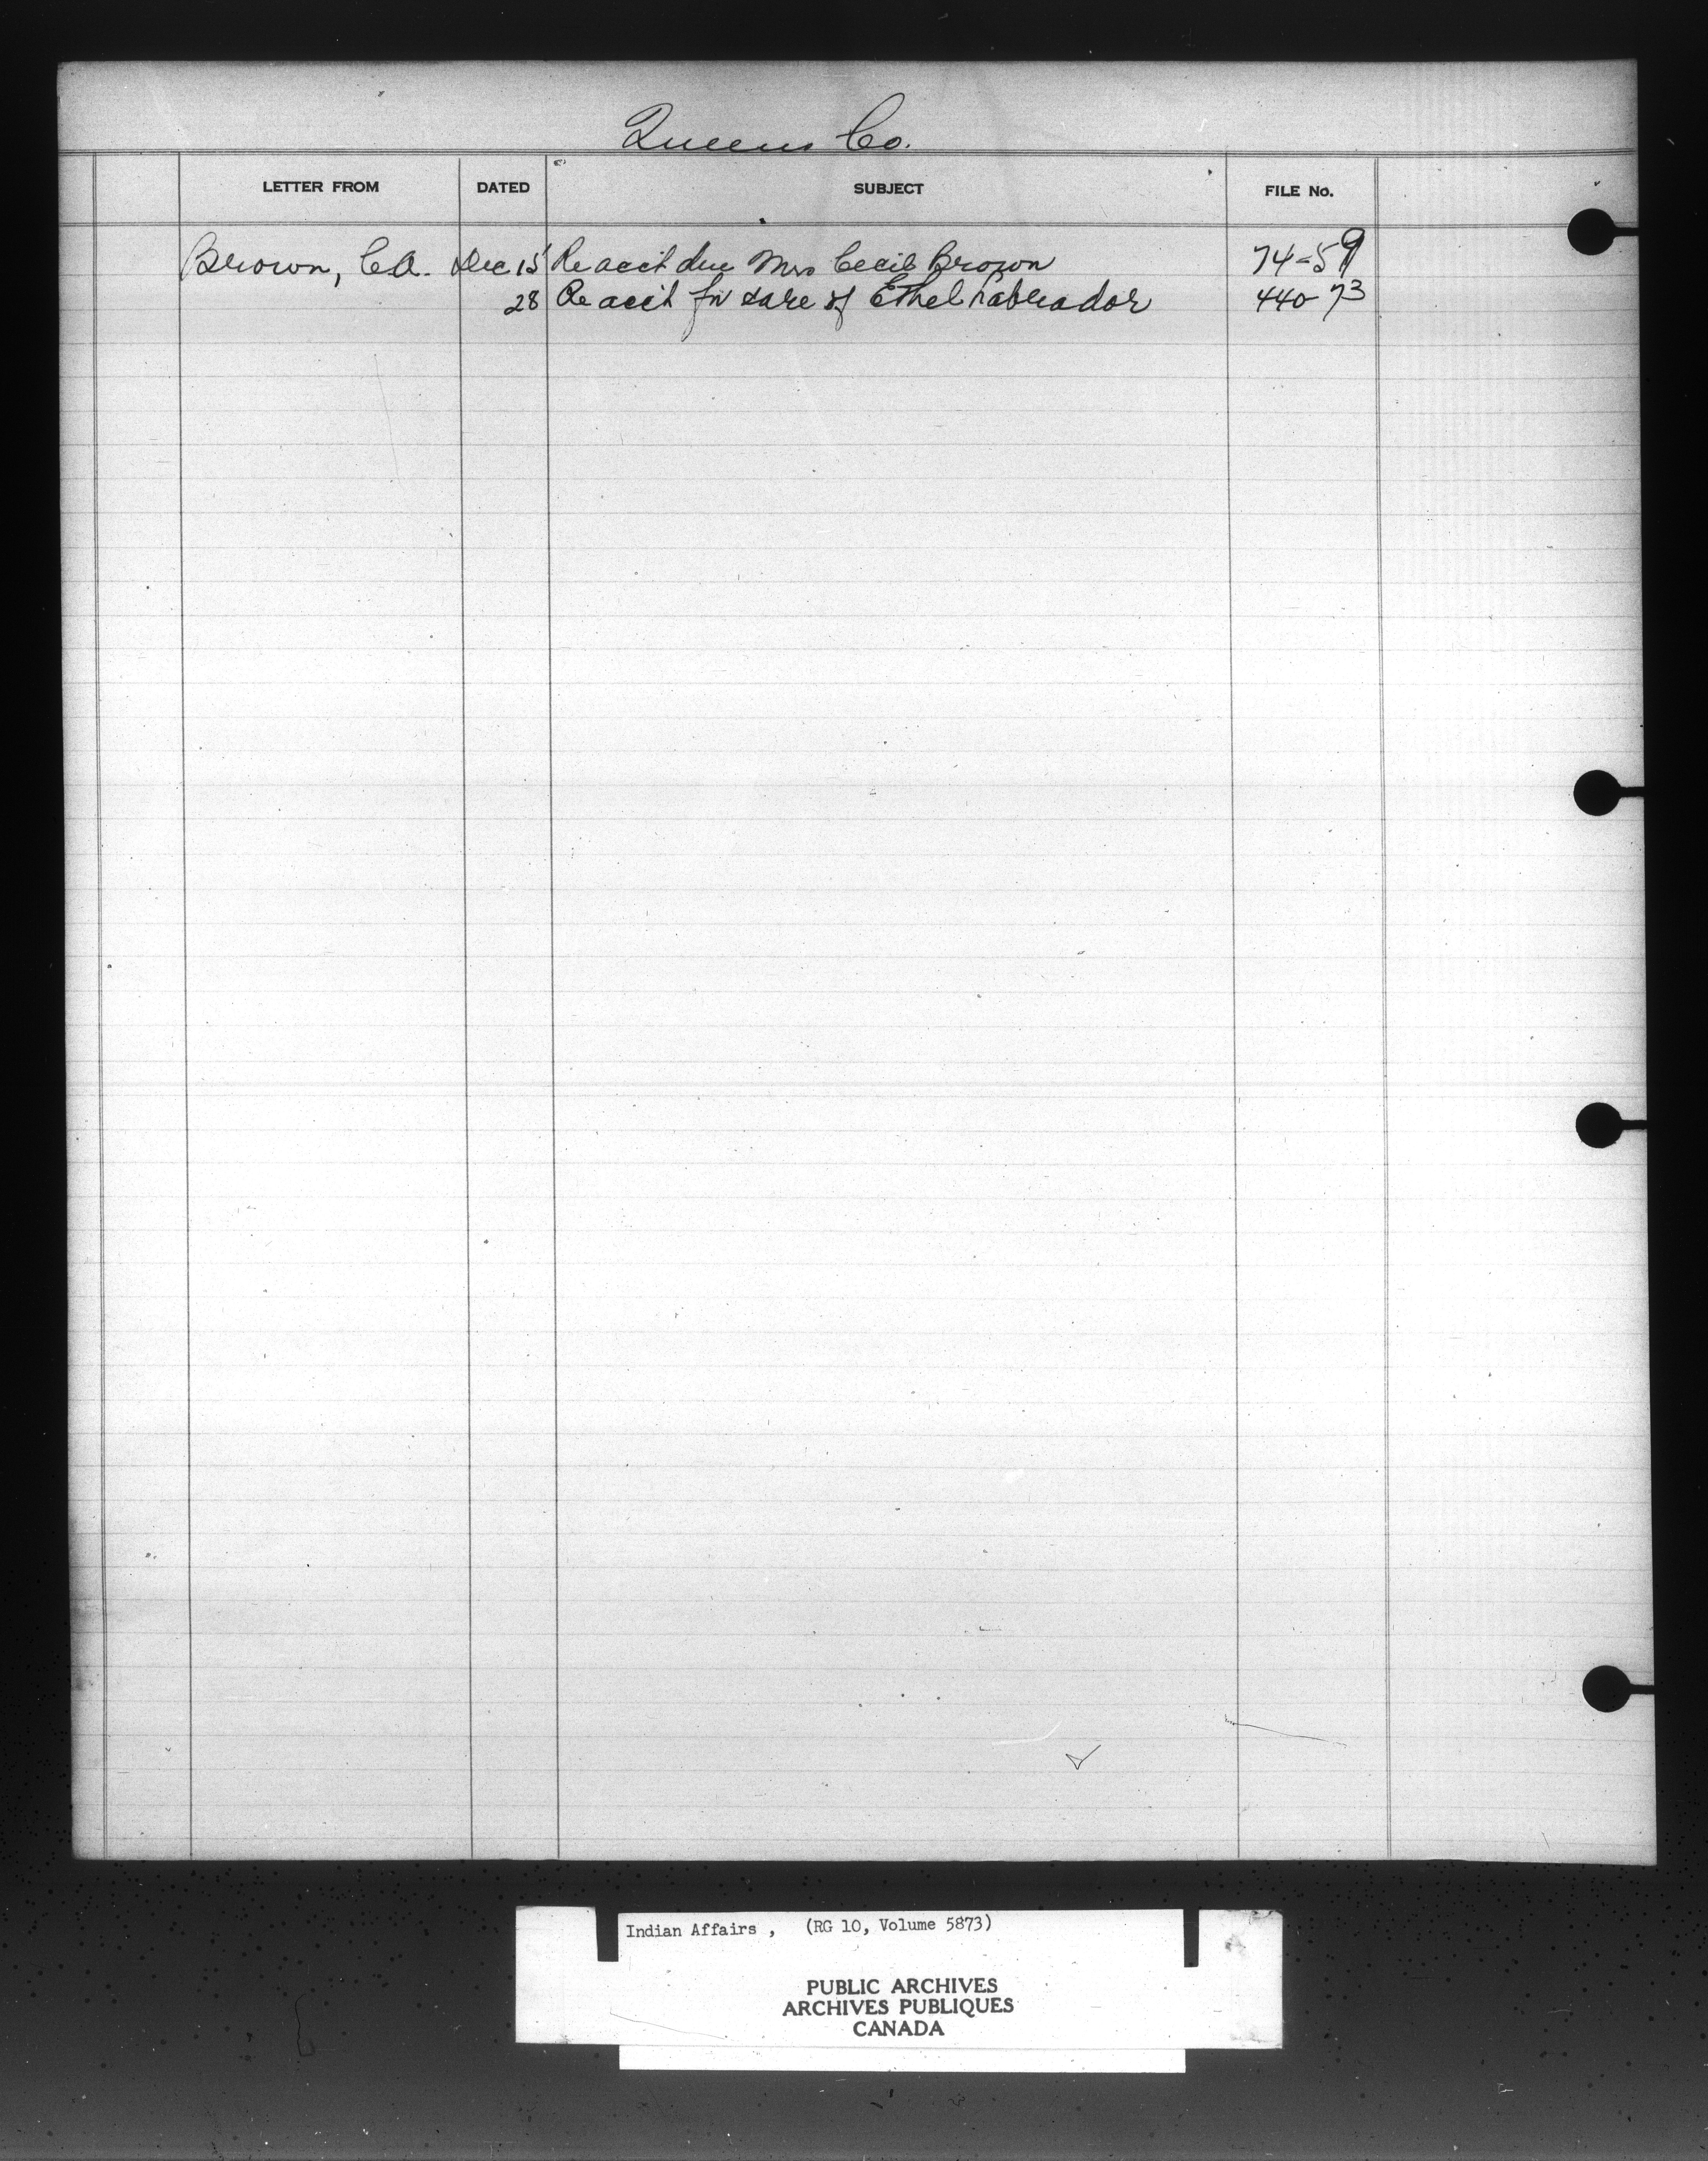 Queens Co.
LETTER FROM DATED SUBJECT FILE No.
Brown, C.A. Dec 15 Re acct due Mrs Cecil Brown 74-59
28 Re acct for care of Ethel Labrador 440-73
Indian Affairs , (RG 10, Volume 5873)
PUBLIC ARCHIVES
ARCHIVES PUBLIQUES
CANADA